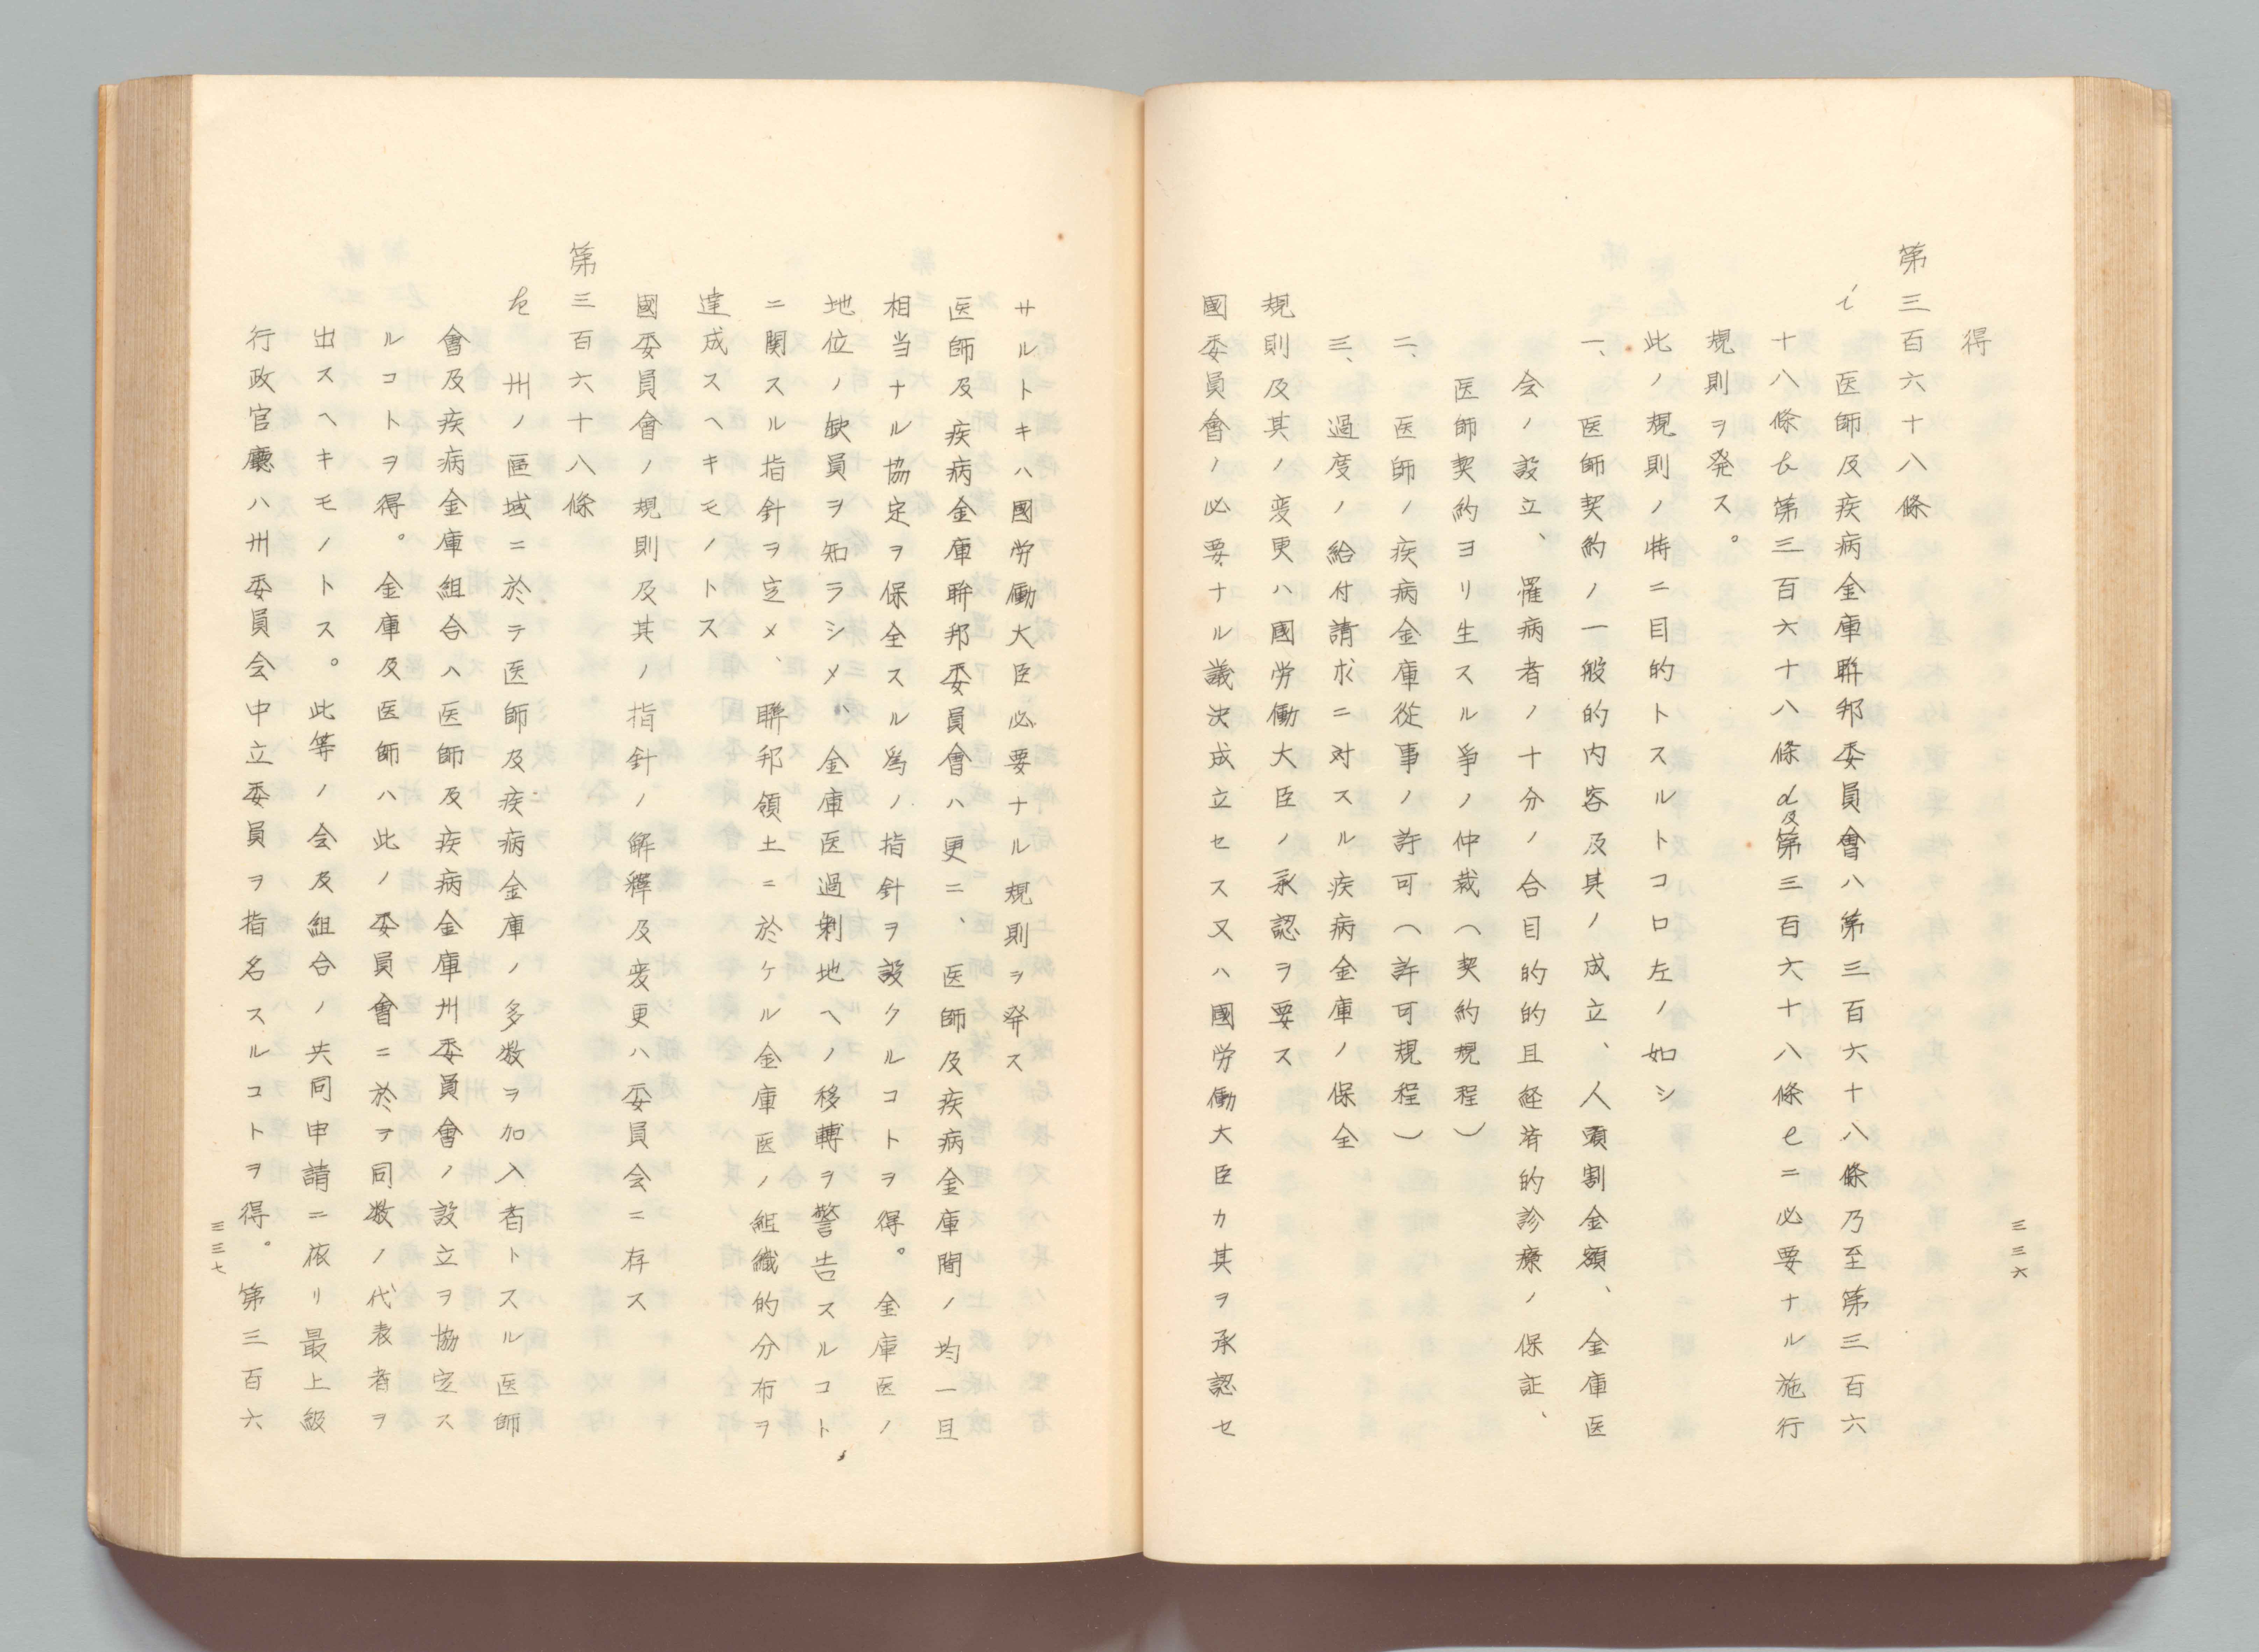 得
第三百六十八條
i 医師及疾病金庫聯邦委員會ハ第三百六十八條乃至第三百六
十八條b第三百六十八條d及第三百六十八條eニ必要ナル施行
規則ヲ発ス。
此ノ規則ノ特ニ目的トスルトコロ左ノ如シ
一、医師契約ノ一般的内容及其ノ成立、人頭割金額、金庫医
会ノ設立、罹病者ノ十分ノ合目的的且経済的診療ノ保証、
医師契約ヨリ生スル争ノ仲裁（契約規程）
二、医師ノ疾病金庫従事ノ許可（許可規程）
三、過度ノ給付請求ニ対スル疾病金庫ノ保全
規則及其ノ変更ハ國労働大臣ノ承認ヲ要ス
國委員會ノ必要ナル議決成立セス又ハ國労働大臣カ其ヲ承認セ
三三六
サルトキハ國労働大臣必要ナル規則ヲ発ス
医師及疾病金庫聯邦委員會ハ更ニ、医師及疾病金庫間ノ均一且
相当ナル協定ヲ保全スル爲ノ指針ヲ設クルコトヲ得。金庫医ノ
地位ノ缺員ヲ知ラシメ、金庫医過剰地ヘノ移轉ヲ警告スルコト
ニ関スル指針ヲ定メ、聯邦領土ニ於ケル金庫医ノ組織的分布ヲ
達成スヘキモノトス
國委員會ノ規則及其ノ指針ノ解釋及変更ハ委員会ニ存ス
第三百六十八條
k 州ノ區域ニ於テ医師及疾病金庫ノ多数ヲ加入者トスル医師
會及疾病金庫組合ハ医師及疾病金庫州委員會ノ設立ヲ協定ス
ルコトヲ得。金庫及医師ハ此ノ委員會ニ於テ同数ノ代表者ヲ
出スヘキモノトス。此等ノ会及組合ノ共同申請ニ依リ最上級
行政官廳ハ州委員会中立委員ヲ指名スルコトヲ得。第三百六
三三七